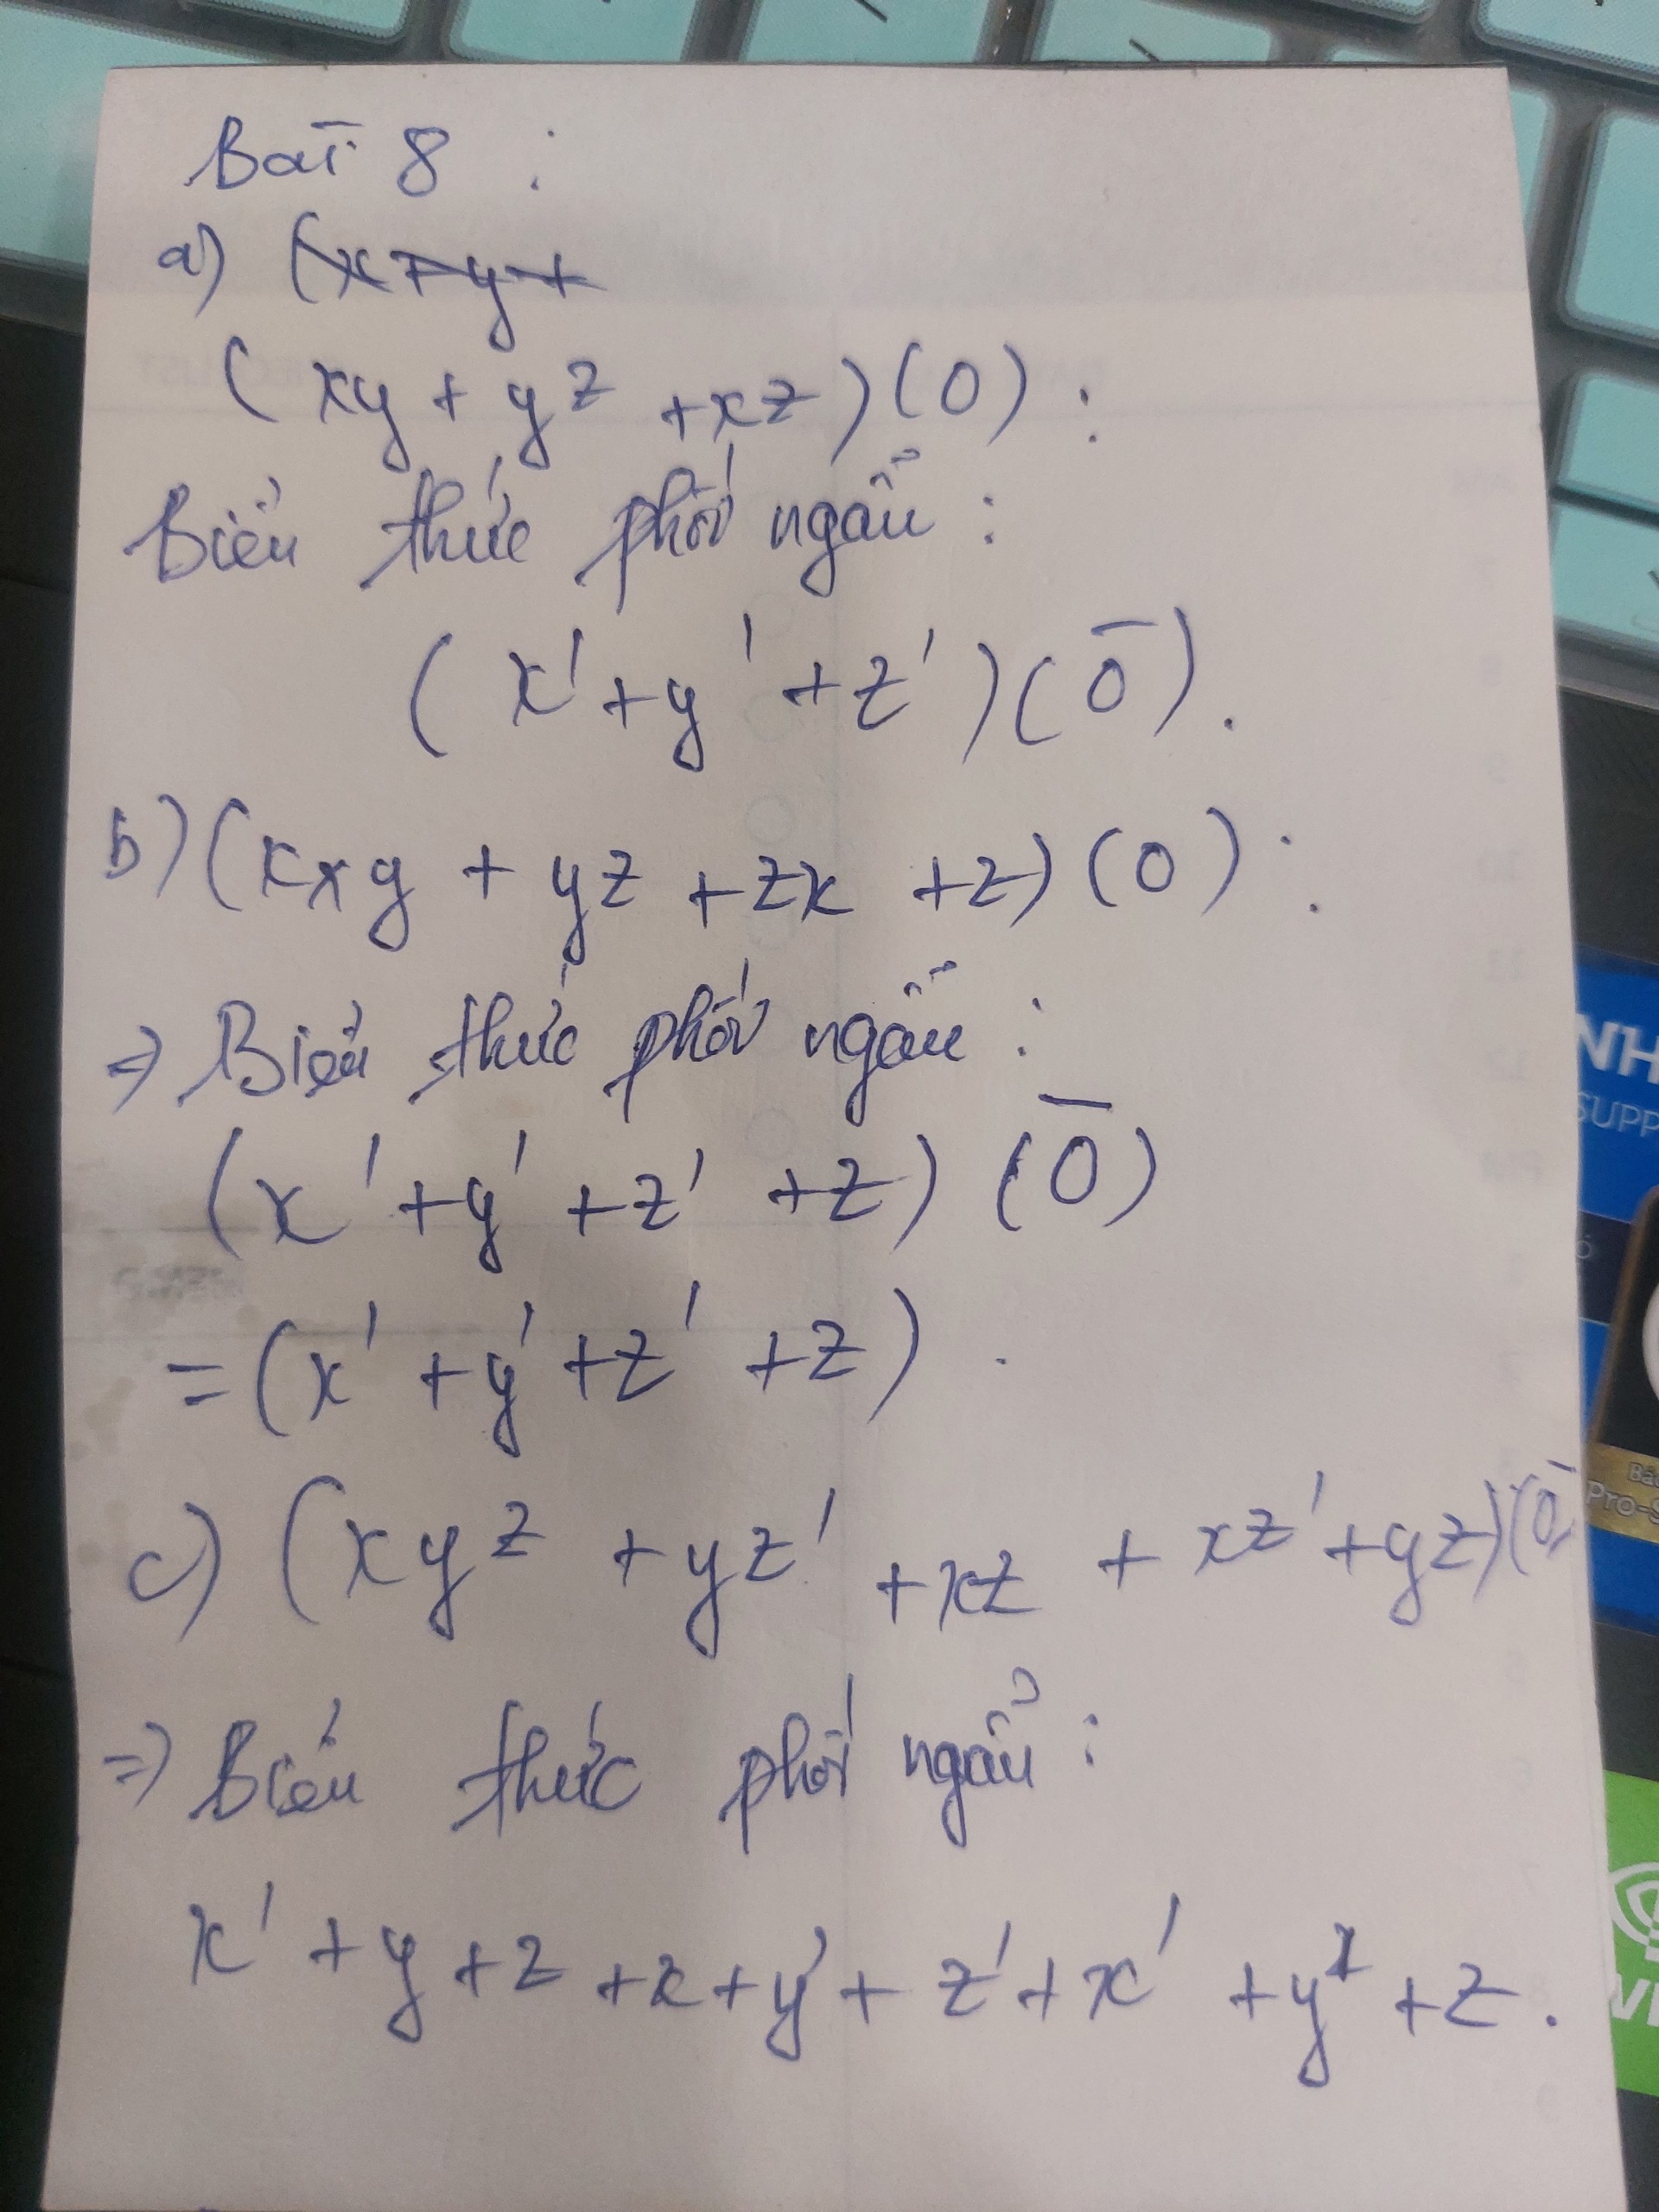 Bài 8 :
a) (x+y+
(xy + yz +xz)(0) :
Biểu thức phối ngẫu :
(x'+y'+z')(0̅).
b) (xxy + yz +zx +z)(0) :
=> Biểu thức phối ngẫu :
(x'+y'+z'+z)(0̅)
=(x'+y'+z'+z).
c) (xyz +yz' +xz + xz'+yz)(0̅
=> Biểu thức phối ngẫu :
x'+y+z+x+y'+z'+x' +y +z.
NH
SUPP
Pro-S